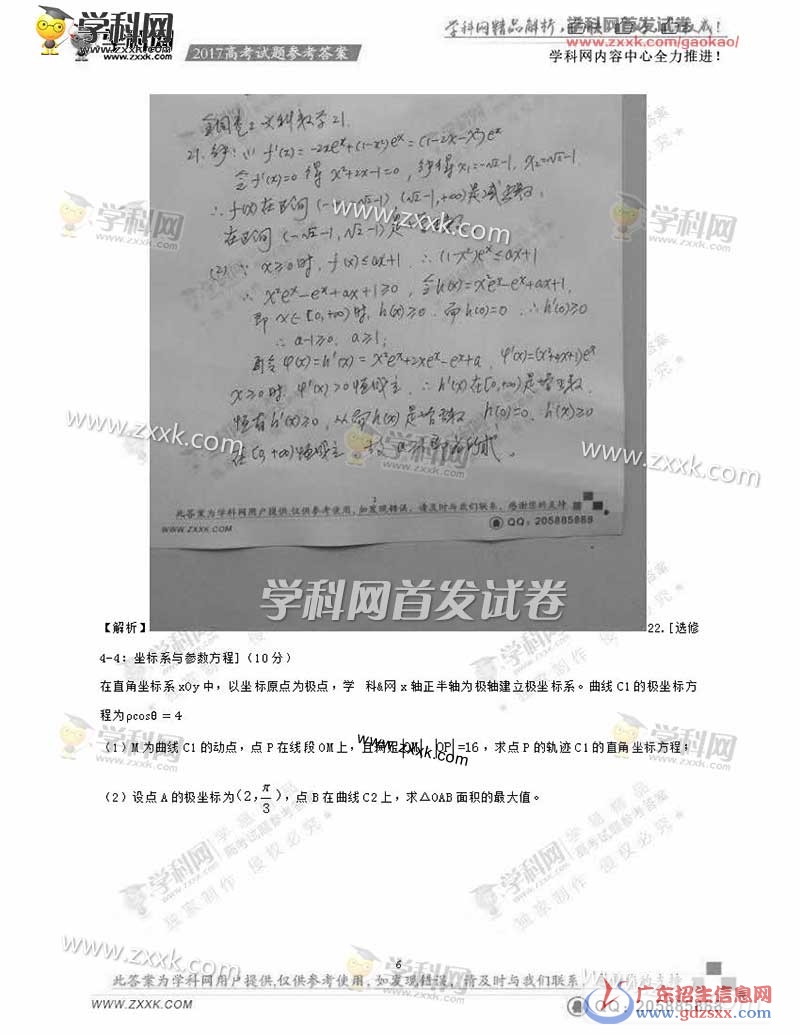 学科网
www.zxxk.com
2017高考试题参考答案
学科网精品解析，
学科网首发试卷
www.zxxk.com/gaokao/
学科网内容中心全力推进！
全国卷2文科数学21.
21.解：(1) f'(x)=-2xe^x+(1-x²)e^x=(1-2x-x²)e^x
令f'(x)=0得 x²+2x-1=0，解得x₁=-√2-1，x₂=√2-1
∴ f(x)在区间(-∞,-√2-1),(√2-1,+∞)是减函数,
在区间(-√2-1,√2-1)是
(2)∵ x≥0时, f(x)≤ax+1 ∴(1-x²)e^x≤ax+1
∴ x²e^x-e^x+ax+1≥0，令h(x)=x²e^x-e^x+ax+1,
即x∈[0,+∞)时, h(x)≥0. 而h(0)=0 ∴h'(0)≥0
∴ a-1≥0, a≥1,
再令φ(x)=h'(x)=x²e^x+2xe^x-e^x+a, φ'(x)=(x²+4x+1)e^x
x≥0时, φ'(x)>0恒成立 ∴h'(x)在[0,+∞)是增函数,
恒有h'(x)≥0, 从而h(x)是增函数 h(0)=0, h(x)≥0
在[0,+∞)恒成立
2
此答案为学科网用户提供,仅供参考使用,如发现错误,请及时与我们联系,感谢您的支持
WWW.ZXXK.COM
QQ：205885868
学科网首发试卷
【解析】
22.[选修
4-4：坐标系与参数方程]（10分）
在直角坐标系xOy中，以坐标原点为极点，学 科&网x轴正半轴为极轴建立极坐标系。曲线C1的极坐标方
程为ρcosθ＝4
（1）M为曲线C1的动点，点P在线段OM上，且满足|OM|·|OP|=16，求点P的轨迹C1的直角坐标方程；
（2）设点A的极坐标为(2,π/3)，点B在曲线C2上，求△OAB面积的最大值。
学科网
学易精品
高考试题参考答案
独家制作 侵权必究
www.zxxk.com
6
此答案为学科网用户提供,仅供参考使用,如发现错误,请及时与我们联系,
WWW.ZXXK.COM
QQ：205885868
广东招生信息网
www.gdzsxx.com